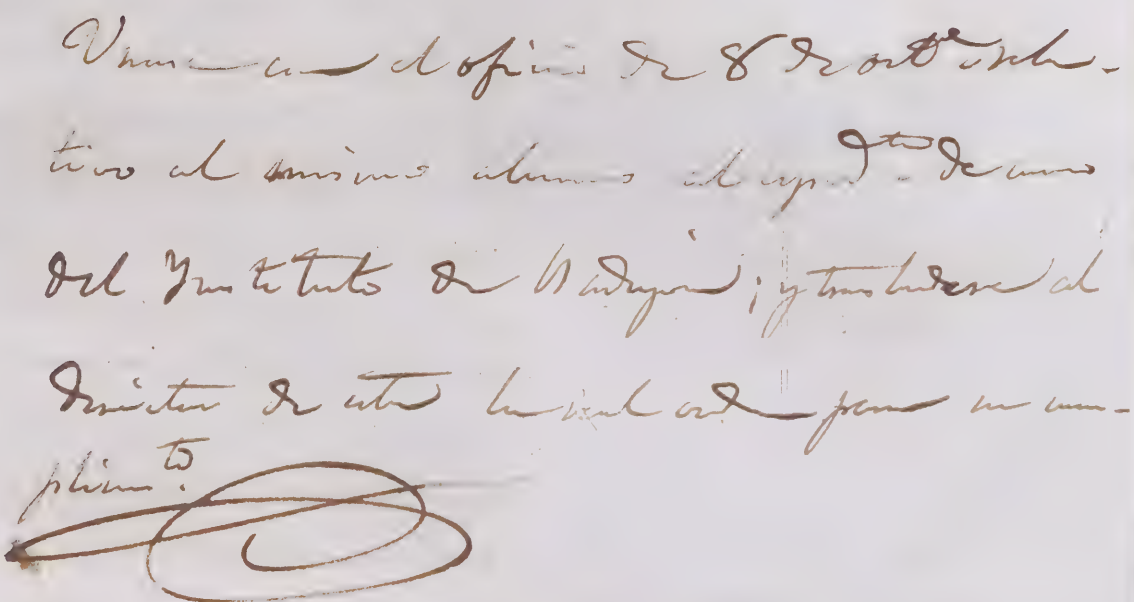 Unase con el oficio de 8 de oct.e rela-
tivo al mismo alumno al exped.te de
del Ynstituto de Badajoz; y trasladese al
director de este la real orden para su cum-
plim.to